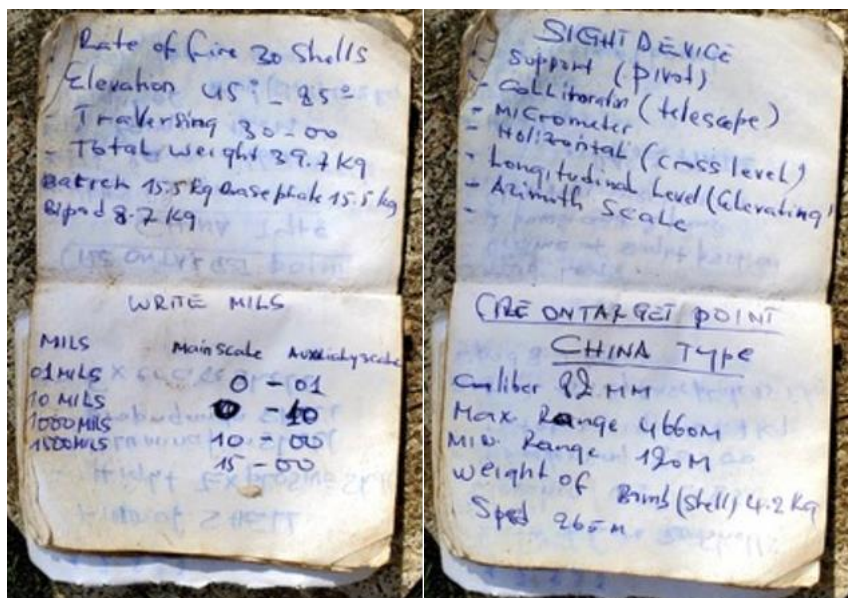 - Rate of fire 30 Shells
Elevation 45° - 85°
- Traversing 30-00
- Total weight 39.7 Kg
15.5 Kg Base plate 15.5 kg
Bipod 8.7 Kg
WRITE MILS
MILS Main Scale Auxiliary scale
01 MILS 0 - 01
10 MILS 0 - 10
1000 MILS 10 - 00
1500 MILS 15 - 00
SIGHT DEVICE
- Support (pivot)
- Collimator (telescope)
- Micrometer
- Holizontal (cross level)
- Longitudinal Level (Elevating)
- Azimuth Scale
FIRE ON TARGET POINT
CHINA TYPE
Caliber 82 MM
Max. Range 4660M
Min. Range 120M
Weight of Bomb (Shell) 4.2 Kg
265 m